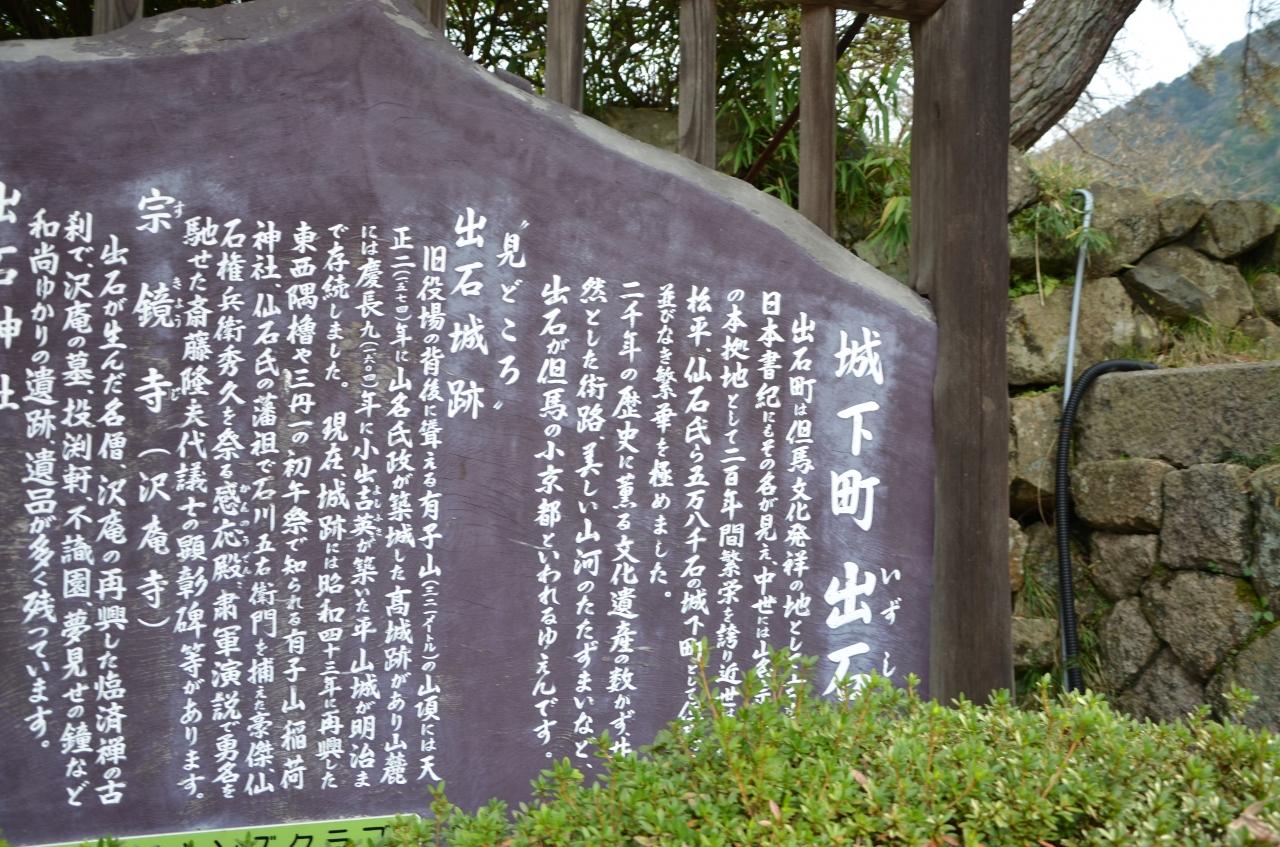 城下町 出石
いずし
出石町は但馬文化発祥の地として
日本書紀にもその名が見え、中世には山名
の本拠地として二百年間繁栄を誇り近世
松平、仙石氏ら五万八千石の城下町として
並びなき繁華を極めました。
二千年の歴史に薫る文化遺産の数かず、
然とした街路、美しい山河のたたずまいなど、
出石が但馬の小京都といわれるゆえんです。
〝見どころ〟
出石城跡
旧役場の背後に聳える有子山(三二一メートル)の山頂には天
正二(一五七四)年に山名氏政が築城した高城跡があり山麓
には慶長九(一六〇四)年に小出吉英が築いた平山城が明治ま
で存続しました。 現在城跡には昭和四十三年に再興した
東西隅櫓や三丹一の初午祭で知られる有子山稲荷
神社、仙石氏の藩祖で石川五右衛門を捕えた豪傑、仙
石権兵衛秀久を祭る感応殿、粛軍演説で勇名を
かんのうでん
馳せた斎藤隆夫代議士の顕彰碑等があります。
宗鏡寺(沢庵寺)
すきょうじ
出石が生んだ名僧、沢庵の再興した臨済禅の古
刹で、沢庵の墓、投渕軒、不識園、夢見せの鐘など
和尚ゆかりの遺跡、遺品が多く残っています。
出石神社
ンズクラブ